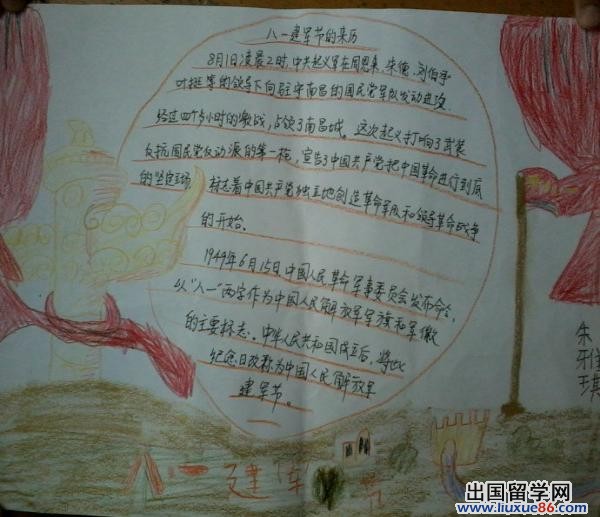 八一建军节的来历
8月1日凌晨2时,中共起义军在周恩来、朱德、刘伯承
叶挺等的领导下向驻守南昌的国民党军队发动进攻.
经过四个多小时的激战,占领了南昌城。这次起义打响了武装
反抗国民党反动派的第一枪,宣告了中国共产党把中国革命进行到底
的坚定立场,标志着中国共产党独立地创造革命军队和领导革命战争
的开始。
1949年6月15日,中国人民革命军事委员会发布命令,
以“八一”两字作为中国人民解放军军旗和军徽
的主要标志。中华人民共和国成立后,将此
纪念日改称为中国人民解放军
建军节。
朱
琪
八一建军节
出国留学网
www.liuxue86.com